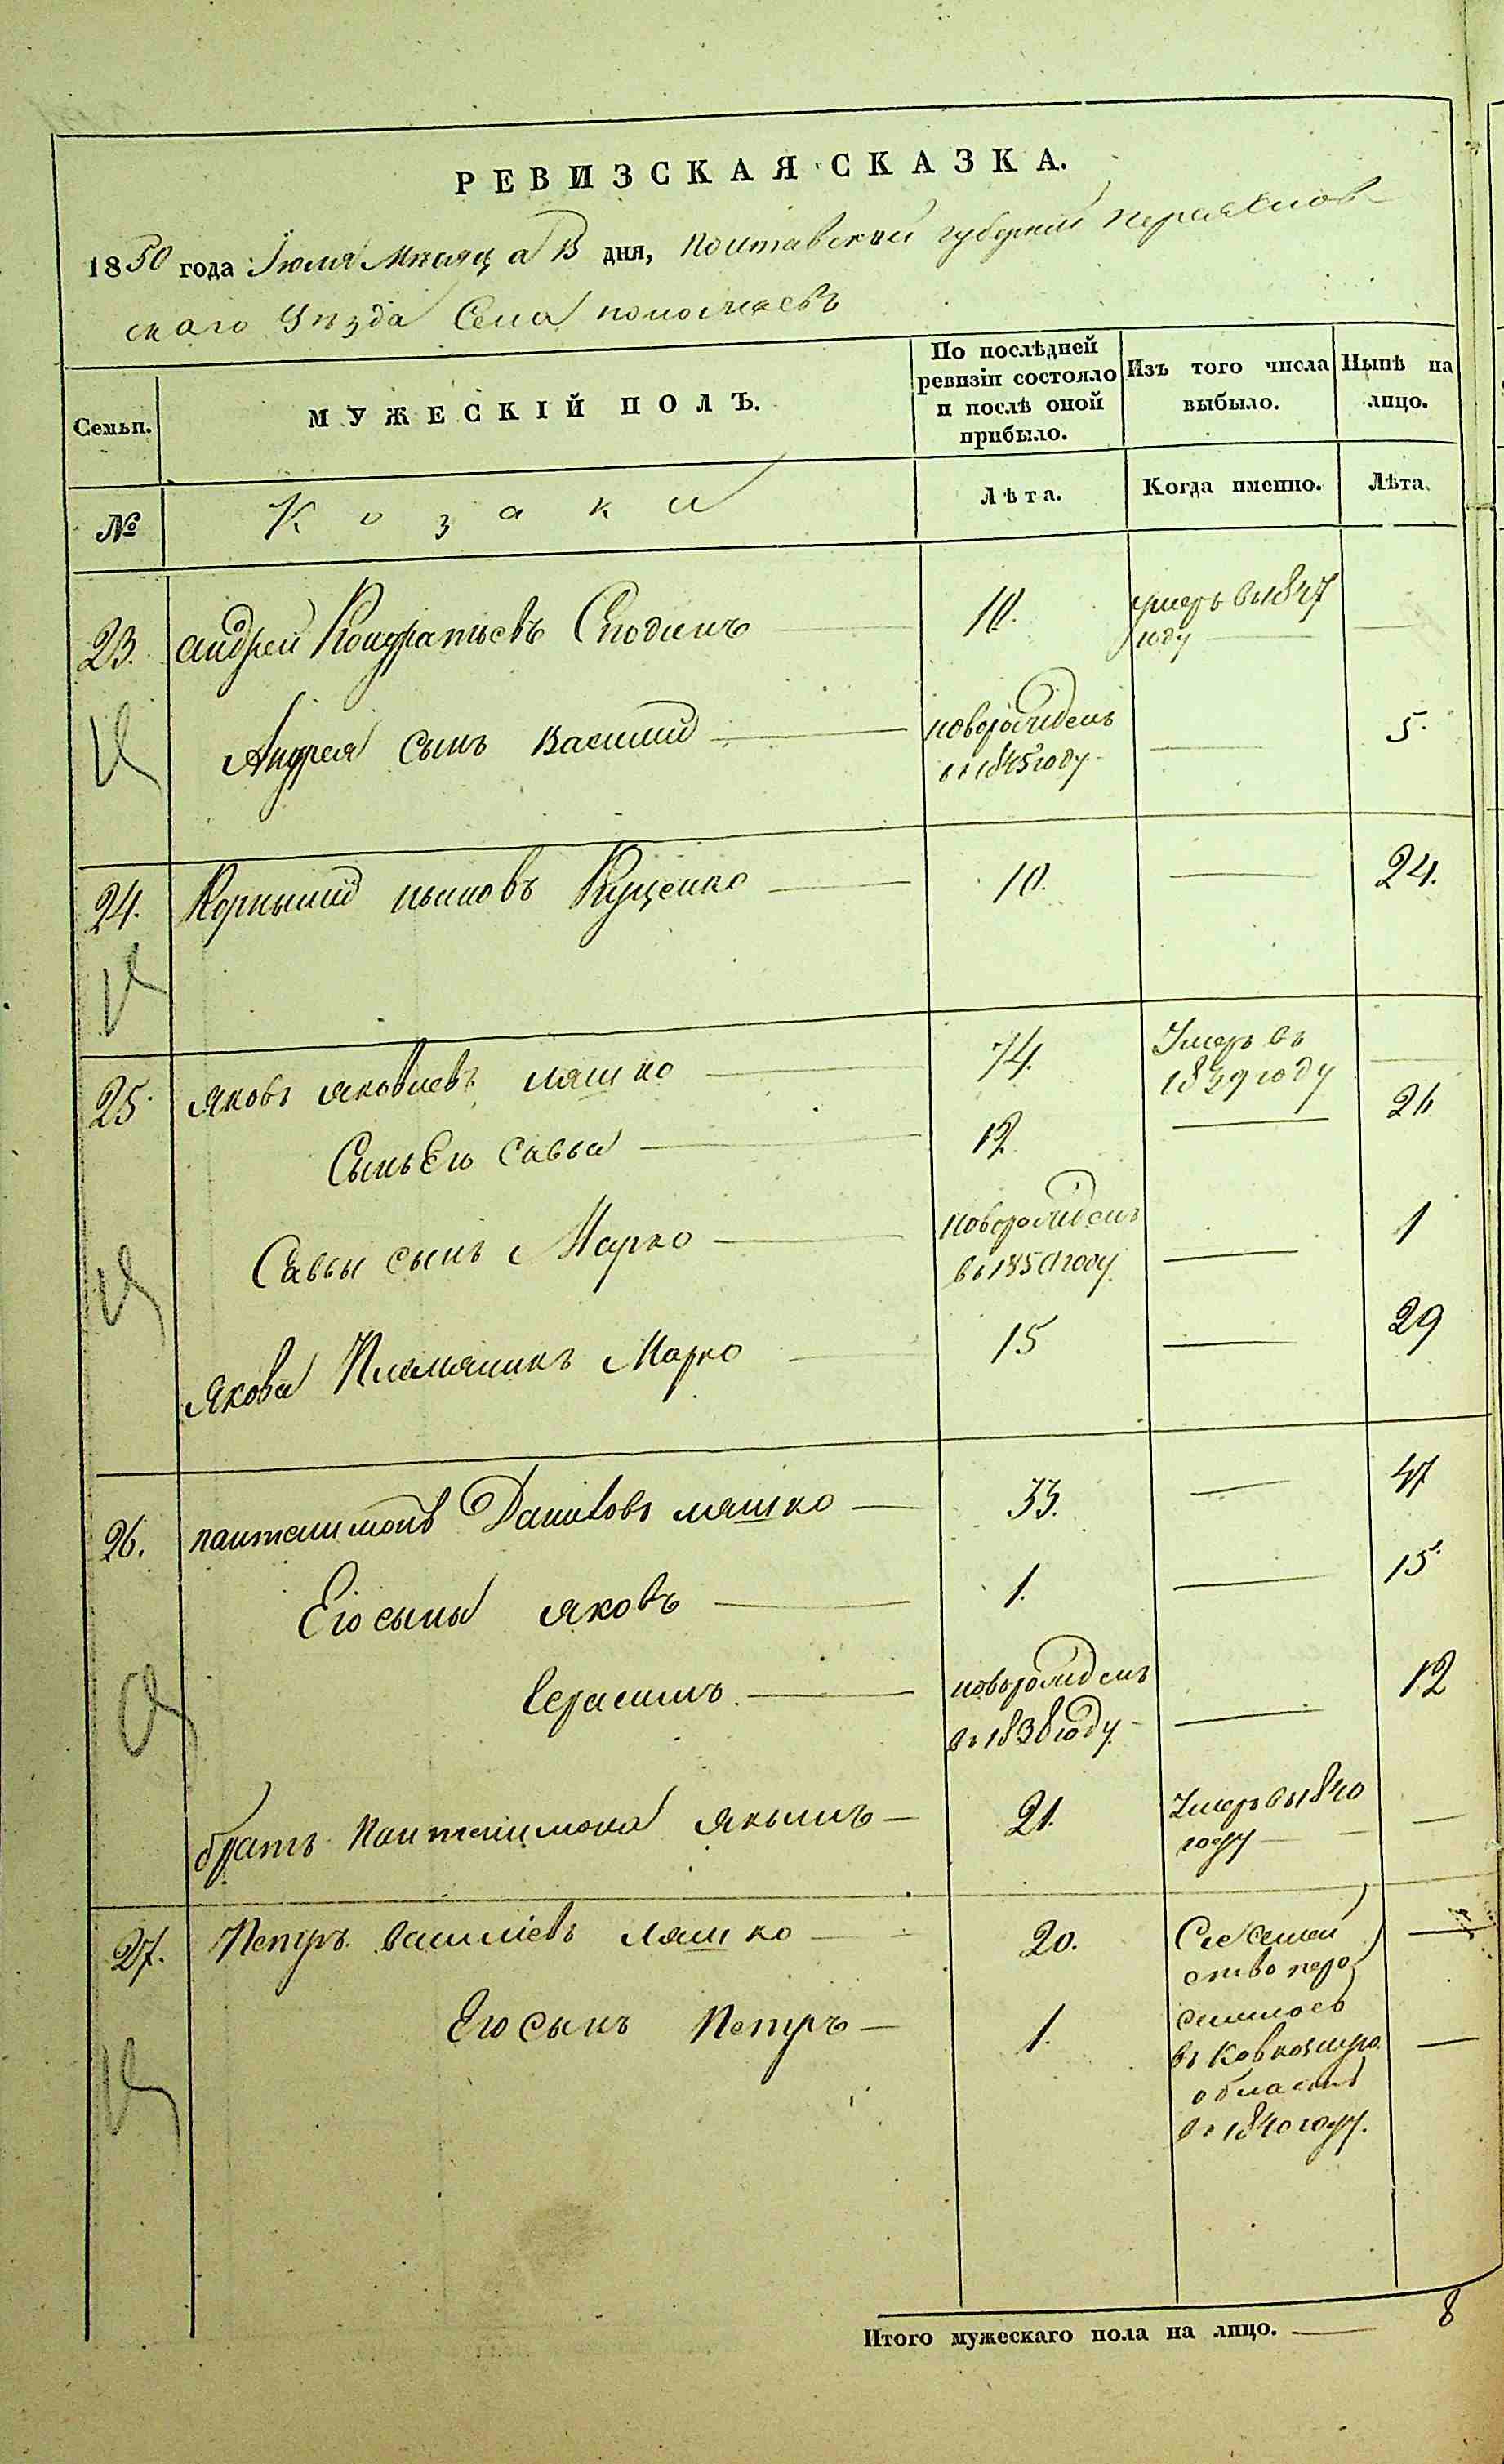 РЕВИЗСКАЯ СКАЗКА.
1850 года Июля Мѣсяца 13 дня, Полтавской губерніи переяслов-
скаго Уѣзда Села
Семьи. МУЖЕСКІЙ ПОЛЪ. По послѣдней ревизіи состояло и послѣ оной прибыло. Изъ того числа выбыло. Нынѣ на лицо.
№ Козаки Лѣта. Когда именно. Лѣта.
23. андрей Кондратьевъ 10. умеръ въ 1847 году —
Андрея сынъ василий новорожденъ въ 1845 году — 5.
24. Корнилий Куценко 10. — 24.
25. яковъ яковлевъ ляшко 74. Умеръ въ 1839 году —
Сынъ Его Савва 12. — 26
Саввы сынъ Марко новорожденъ въ 1850 году — 1
якова Племяникъ Марко 15 — 29
26. пантелимонъ Даниловъ ляшко 33. — 47
Его сыны яковъ 1. — 15.
Герасимъ. новорожденъ въ 1838 году — 12
братъ пантелимона якимъ 21. Умеръ въ 1840 году —
27. Петръ василіевъ ляшко 20. Сие семей
ство пере
Его сынъ Петръ 1. селилось
въ Кавказкую
область
въ 1840 году.
Итого мужескаго пола на лицо. — 8